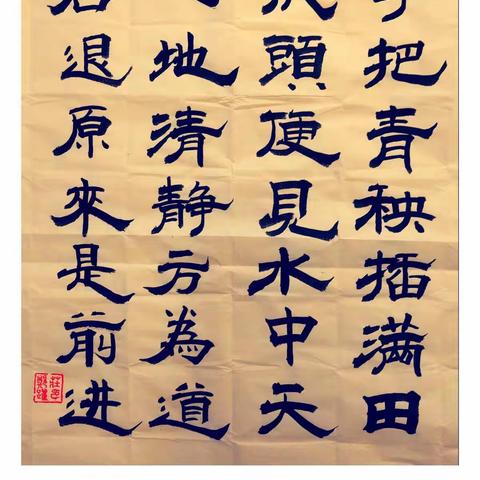 把青秧插满田
頭便見水中天
地清静方為道
退原來是前进